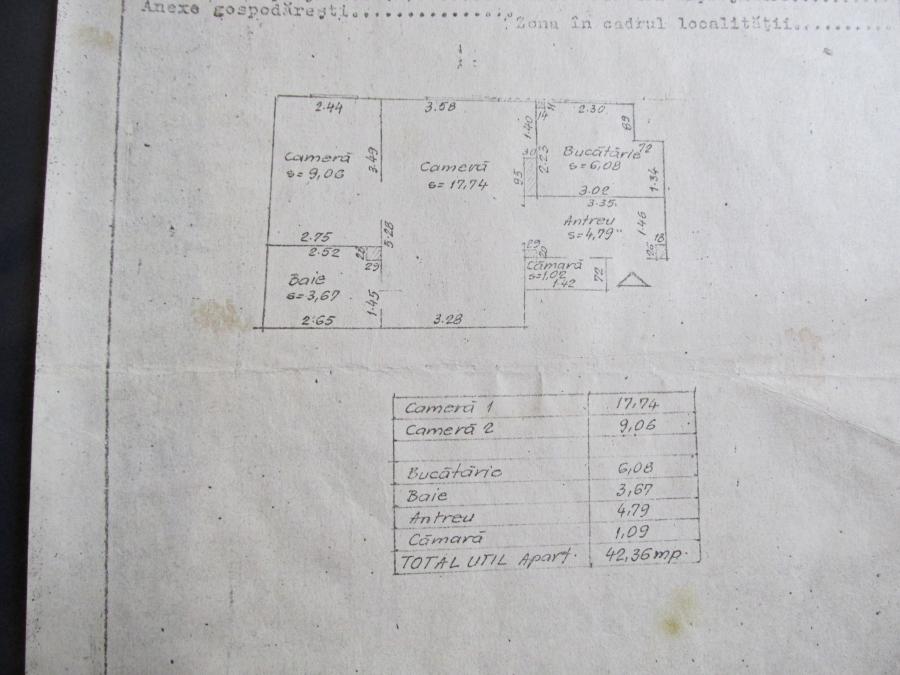 Anexe gospodărești................
Zona în cadrul localității..........
2.44
3.58
2.30
14
1.40
89
Cameră
s=9,06
3.49
Cameră
s=17,74
95
2.23
Bucătărie
s=6,08
72
1.34
3.02
3.35
Antreu
s=4,79
1.46
2.75
5.28
2.52
29
29
Cămară
s=1,02
1.42
72
Baie
s=3,67
1.45
2.65
3.28
Cameră 1 17,74
Cameră 2 9,06
Bucătărie 6,08
Baie 3,67
Antreu 4,79
Cămară 1,09
TOTAL UTIL Apart. 42,36mp.